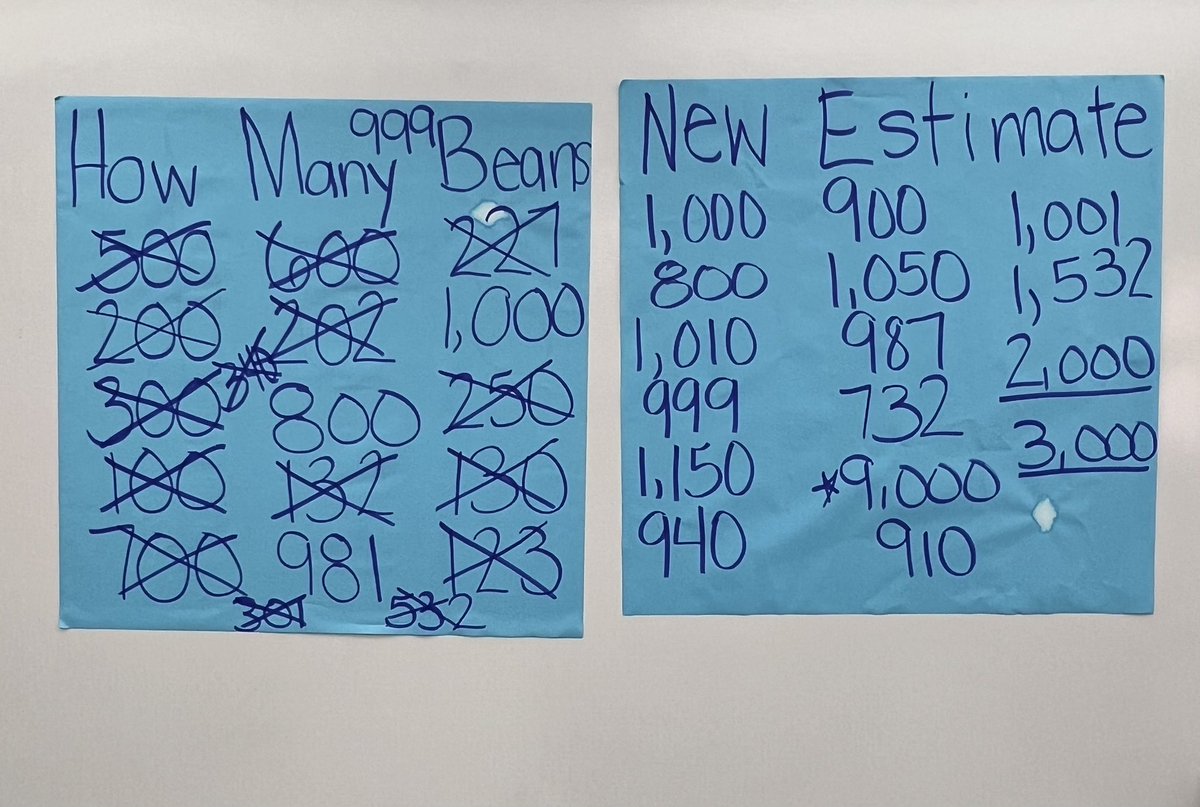 How Many 999 Beans
500 600 227
200 202 1,000
300 340 800 250
100 132 130
700 981 123
301 532
New Estimate
1,000 900 1,001
800 1,050 1,532
1,010 987 2,000
999 732 3,000
1,150 *9,000
940 910